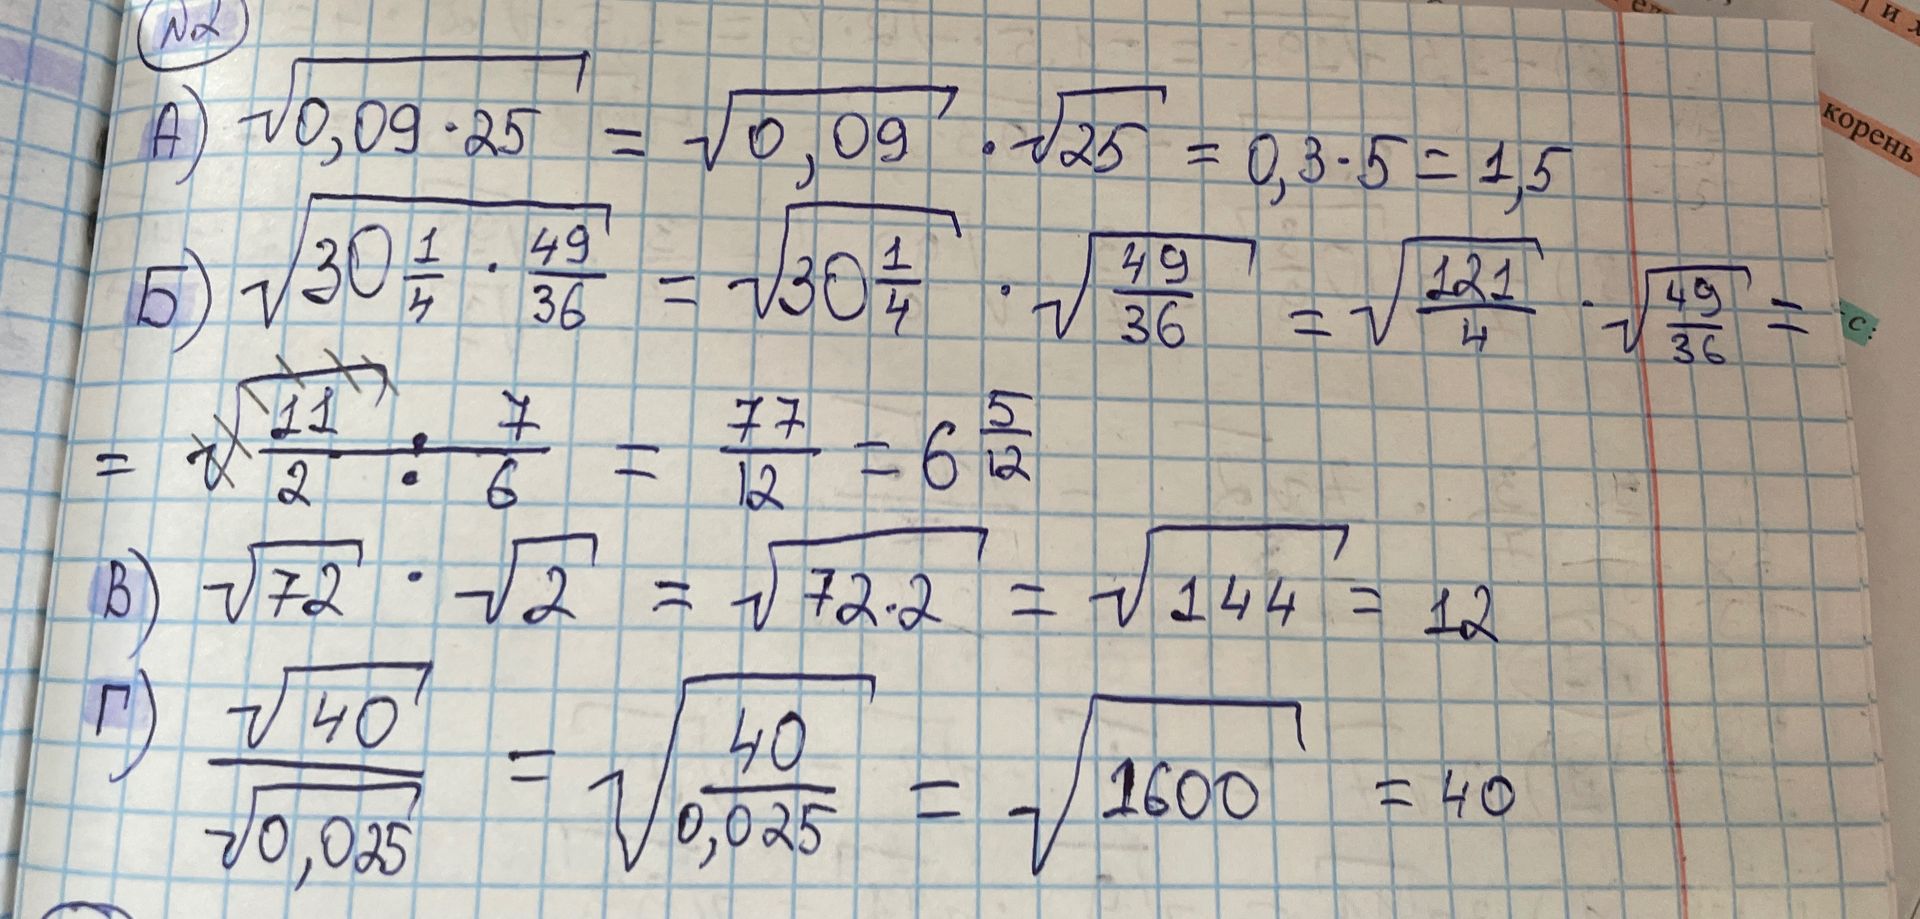 №2
А) √0,09·25 = √0,09 · √25 = 0,3·5 = 1,5
Б) √30 1/4 · 49/36 = √30 1/4 · √49/36 = √121/4 · √49/36 =
= 11/2 · 7/6 = 77/12 = 6 5/12
В) √72 · √2 = √72·2 = √144 = 12
Г) √40/√0,025 = √40/0,025 = √1600 = 40
и х
корень
с: